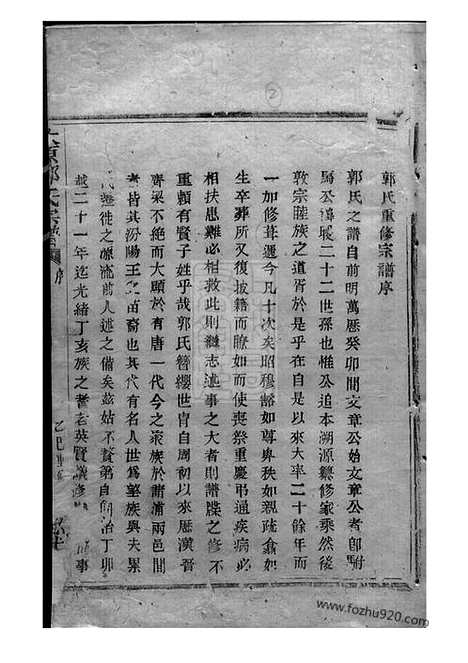 郭氏重修宗譜序
郭氏之譜自前明萬厯癸卯間文章公始文章公者卽駙
馬公曖二十二世孫也惟公追本溯源纂修家乘然後
敦宗睦族之道胥於是乎在自是以來大率二十餘年而
一加修葺遞今凡十次矣昭穆豁如尊卑秩如親疏翕如
生卒葬所又復披籍而瞭如而使喪祭重慶弔通疾病必
相扶患難必相救此則繼志述事之大者則譜牒之修不
重頼有賢子姓乎哉郭氏簪纓世胄自周初以來歷漢晉
齊梁不絶而大顯於有唐一代今之聚族於諸浦兩邑間
者皆其汾陽王之苗裔也其代有名人世爲望族與夫累
代遷徙之源流前人述之備矣茲姑不贅第自同治丁卯
越二十一年迄光緒丁亥族之耆老英賢議修
事
郭氏宗譜
序
www.fozhu920.com